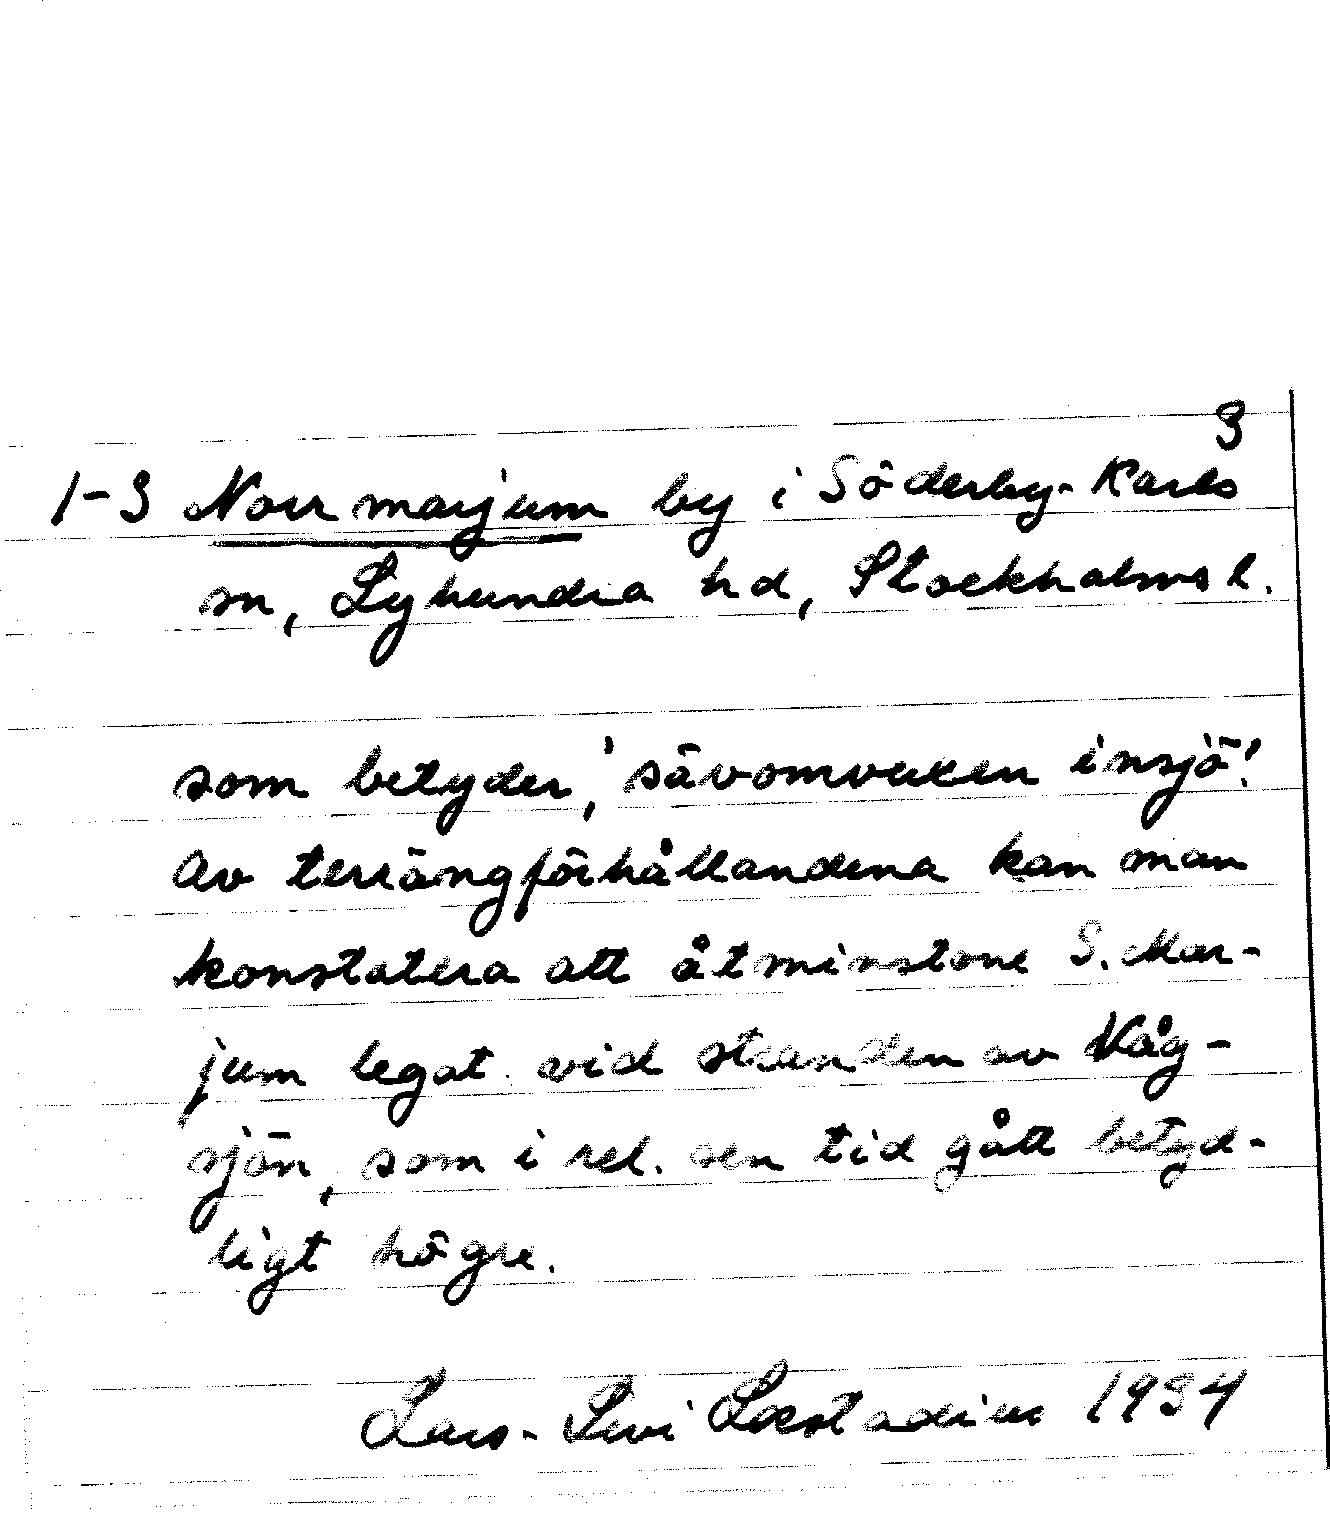 3
1-3 Norrmarjum by i Söderby-Karls
sn, Lyhundra hd, Stockholms l.
som betyder, 'sävomvuxen insjö'.
Av terrängförhållandena kan man
konstatera att åtminstone S. Mar-
jum legat vid stranden av Våg-
sjön, som i rel. sen tid gått betyd-
ligt högre.
Lars-Levi Læstadius 1934